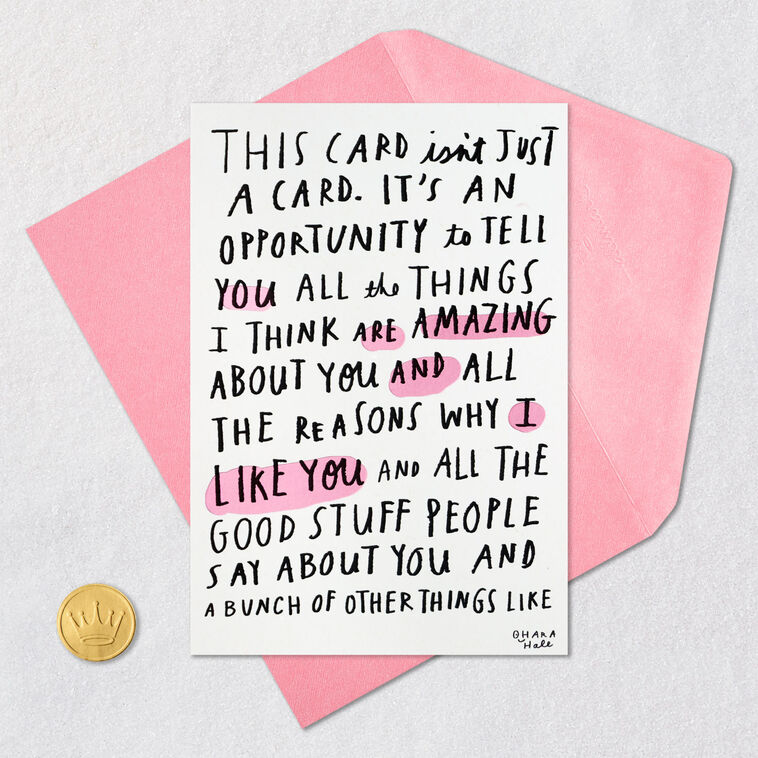 THIS CARD isn't JUST
A CARD. IT'S AN
OPPORTUNITY to TELL
YOU ALL the THINGS
I THINK ARE AMAZING
ABOUT YOU AND ALL
THE REASONS WHY I
LIKE YOU AND ALL THE
GOOD STUFF PEOPLE
SAY ABOUT YOU AND
A BUNCH OF OTHER THINGS LIKE
OHARA
Hale